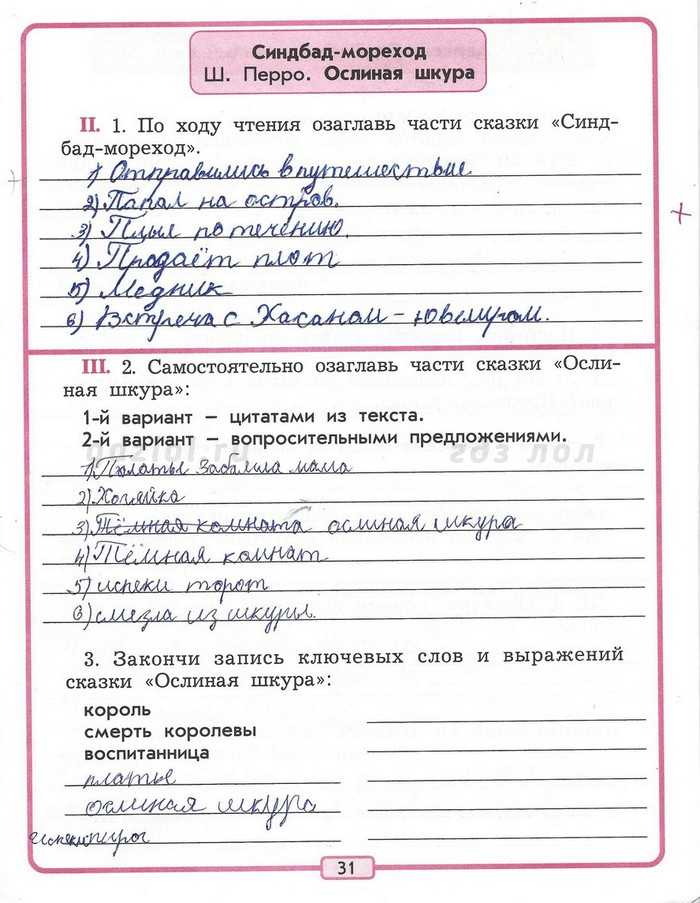 Синдбад-мореход
Ш. Перро. Ослиная шкура
II. 1. По ходу чтения озаглавь части сказки «Синд-
бад-мореход».
1) Отправились в путешествие
2) Попал на остров.
3) Плыл по течению.
4) Продаёт плот
5) Медник
6) Встреча с Хасаном – ювелиром.
III. 2. Самостоятельно озаглавь части сказки «Осли-
ная шкура»:
1-й вариант – цитатами из текста.
2-й вариант – вопросительными предложениями.
гдз лол
1) Платье мама
2) Хозяйка
3) Тёмная комната ослиная шкура
4) Тёмная комнат
5) испеки торот
6) из шкуры.
3. Закончи запись ключевых слов и выражений
сказки «Ослиная шкура»:
король
смерть королевы
воспитанница
платье
ослиная шкура
пирог
31